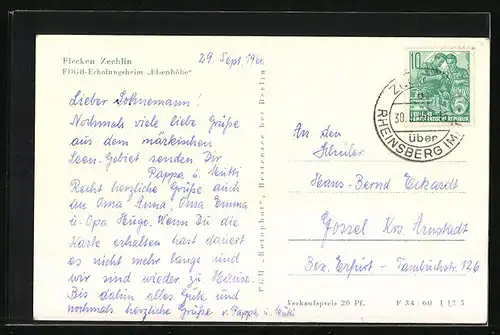 Flecken Zechlin
FDGB-Erholungsheim „Elsenhöhe“
29. Sept. 1960
Lieber Sohnemann!
Nochmals viele liebe Grüße
aus dem märkischen
Seen-Gebiet senden Dir
Pappa u. Mutti
Recht herzliche Grüße auch
an Oma Anna, Oma Emma
u. Opa Hugo. Wenn Du die
Karte erhalten hast dauert
es nicht mehr lange und
wir sind wieder zu Hause.
Bis dahin alles Gute und
nochmals herzliche Grüße v. Pappa u. Mutti
PGH „Rotophot“, Bestensee bei Berlin
10
DEUTSCHE
DEMOKRATISCHE REPUBLIK
30.
über
RHEINSBERG (M
An den
Schüler
Hans-Bernd Eckardt
Gossel Krs. Arnstadt
Bez. Erfurt - Tambuchstr. 126
Verkaufspreis 20 Pf.
F 34/60 I 12 5